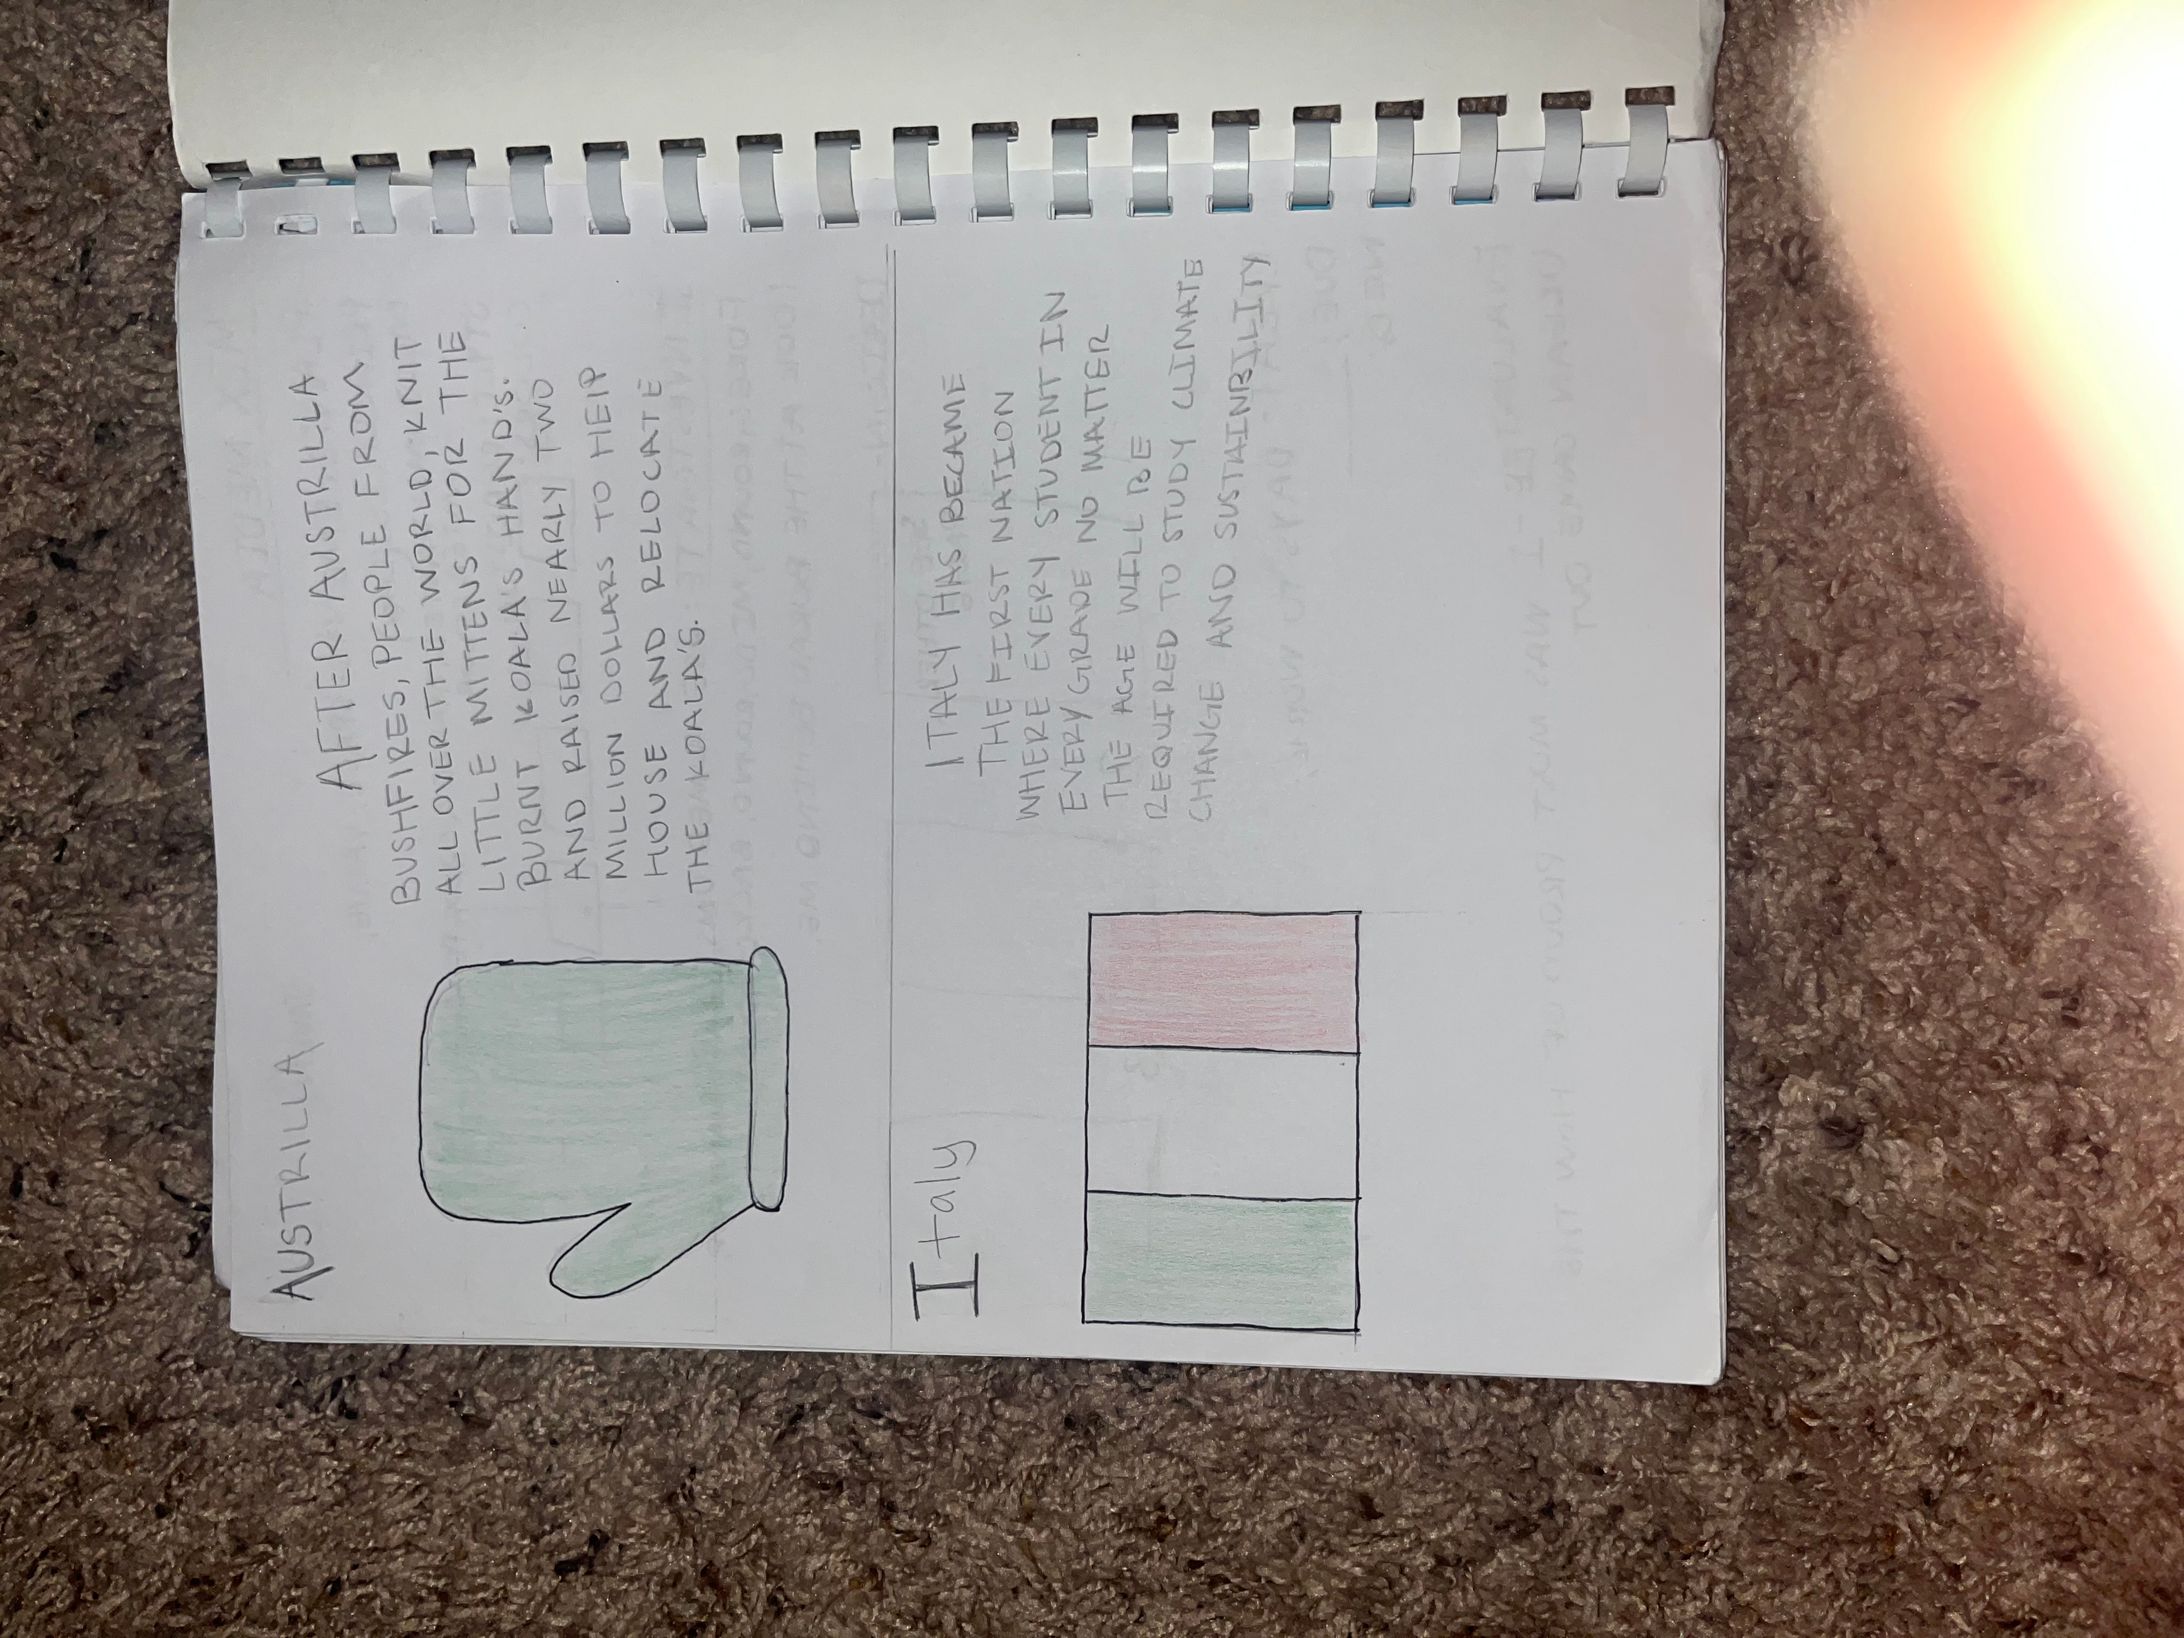 AUSTRILLA
AFTER AUSTRILLA
BUSHFIRES, PEOPLE FROM
ALL OVER THE WORLD, KNIT
LITTLE MITTENS FOR THE
BURNT KOALA'S HAND'S.
AND RAISED NEARLY TWO
MILLION DOLLARS TO HElP
HOUSE AND RELOCATE
THE KOALA'S.
Italy
ITALY HAS BECAME
THE FIRST NATION
WHERE EVERY STUDENT IN
EVERY GRADE NO MATTER
THE AGE WILL BE
REQUIRED TO STUDY CLIMATE
CHANGE AND SUSTAINBILITY